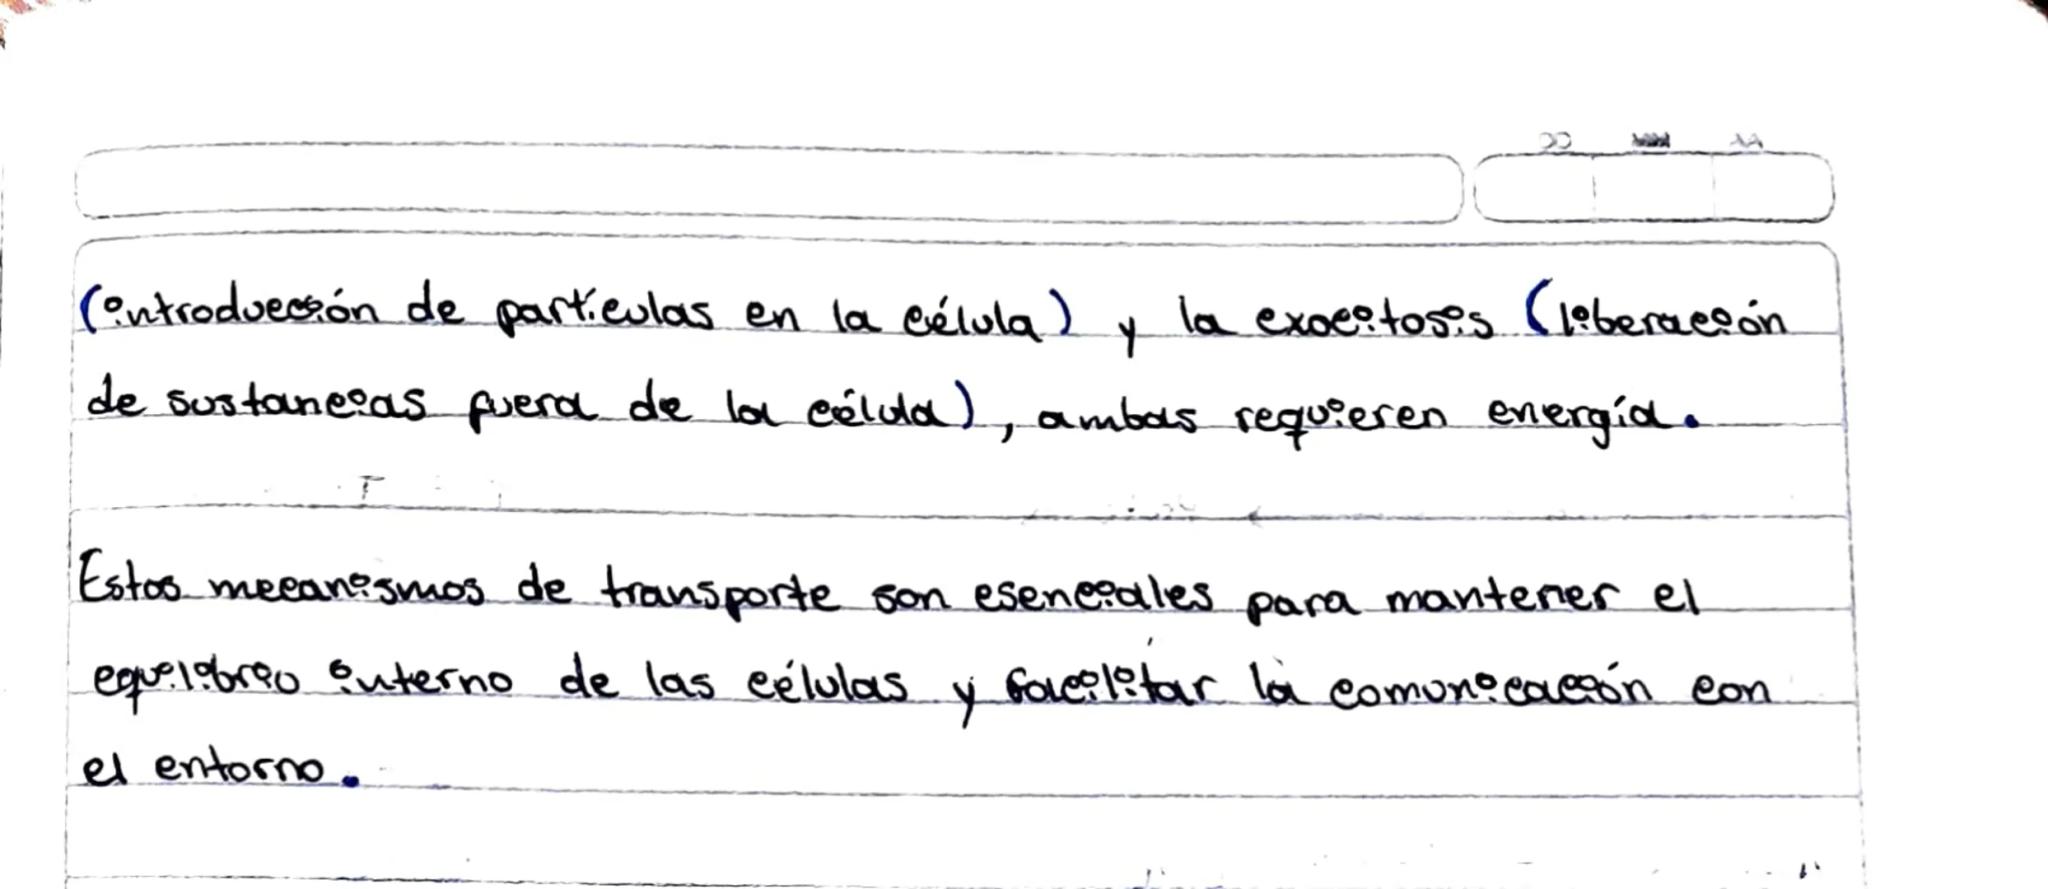 (introducción de partículas en la célula) y la exocitosis (liberación
de sustancias fuera de la célula), ambas requieren energía.
Estos mecanismos de transporte son esenciales para mantener el
equilibrio interno de las células y facilitar la comunicación con
el entorno.